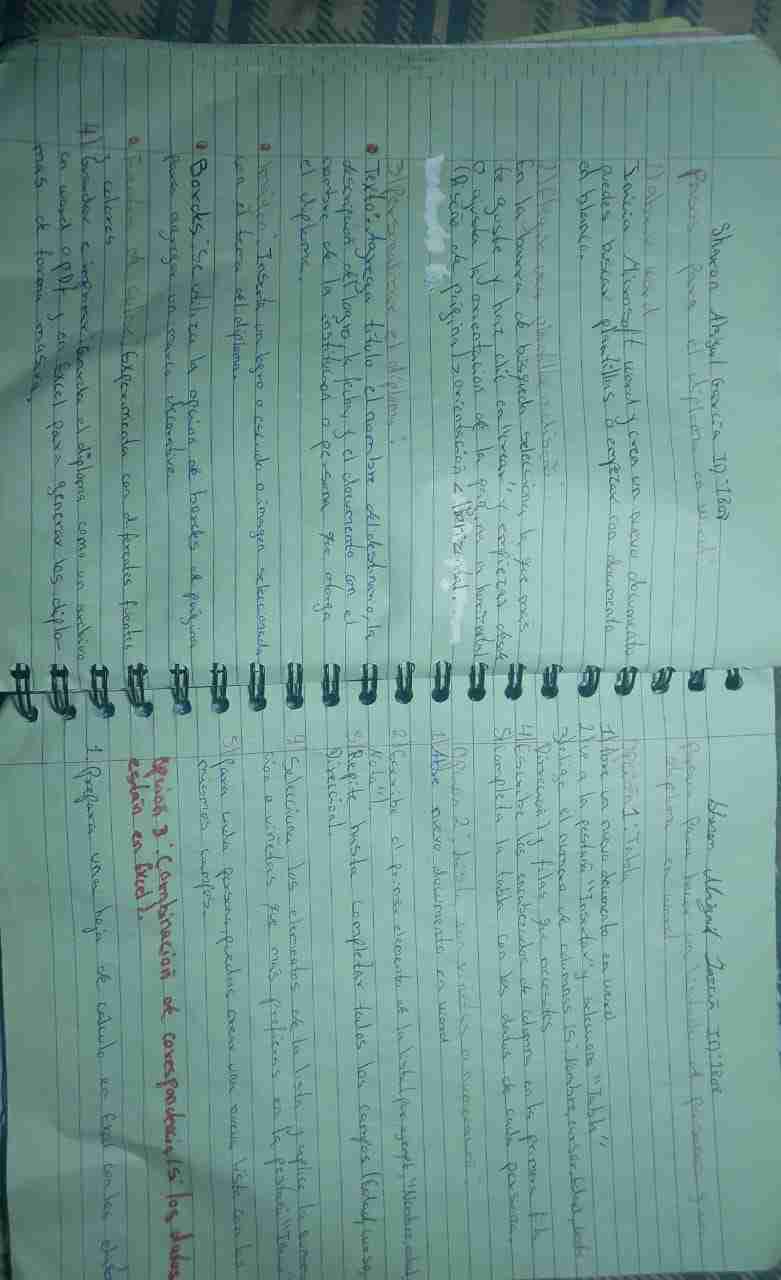 Sharon Abigail García ID:1802
Pasos para el diploma en word:
1) abrir word
Inicia Microsoft word y crea un nuevo documento
puedes buscar plantillas o empezar con documento
en blanco.
En la barra de búsqueda selecciona la que más
te guste y haz clic en "crear" y empiezas desde
o ajusta la orientación de la página a horizontal
(Diseño de página) > orientación < horizontal
3) Personalizar el diploma:
• Texto: Agrega título el nombre del destinario, la
descripción del logro, la fecha y el documento con el
nombre de la institución o persona que otorga
el diploma.
• Imagen: Inserta un logro o escudo o imagen selecionada
con el tema del diploma.
• Bordes: Se utiliza la opción de bordes de página
para agregar un marco decorativo
Experimenta con diferentes fuentes
y colores
4) Guardar e imprimir: Guarda el diploma como un archivo
en word o PDF y en Excel para generar los diplo-
mas de forma masiva.
Sharon Abigail García ID:1802
Pasos para
diploma en word
Opción 1: Tabla
1) Abre un nuevo documento en word
2) Ve a la pestaña "Insertar" y selecciona "Tabla"
3) elige el número de columnas
Dirección) y filas que necesites
4) Escribe los encabezados de columna en la primera fila
5) Completa la tabla con los datos de cada persona.
Opción 2:
1) Abre nuevo documento en word
2) Escribe el primer elemento de la lista (por ejemplo, "Nombre,
3) Repite hasta completar todos los campos (Edad, curso,
Dirección).
4) Selecciona los elementos de la lista y aplica la
o viñetas que más prefieras en la pestaña
5) para cada persona, puedes crear una nueva lista con los
mismos campos.
Opción 3: Combinación de correspondencia (si los datos
están en Excel).
1. Prepara una hoja de cálculo en Excel con los